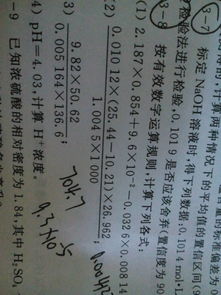 3-7
标定 NaOH 溶液时,得下列数据:0.1014 mol·L
检验法进行检验,0.1019 是否应该舍弃(置信度为 90
3-8 按有效数字运算规则,计算下列各式:
(1) 2.187×0.854+9.6×10⁻²-0.0326×0.00814
(2) 0.01012×(25.44-10.21)×26.962
1.0045×1000
0.00414
3) 9.82×50.62
0.005164×136.6
704.7
4) pH=4.03,计算 H⁺ 浓度。
9.3×10⁻⁵
-9 已知浓硫酸的相对密度为 1.84,其中 H₂SO₄